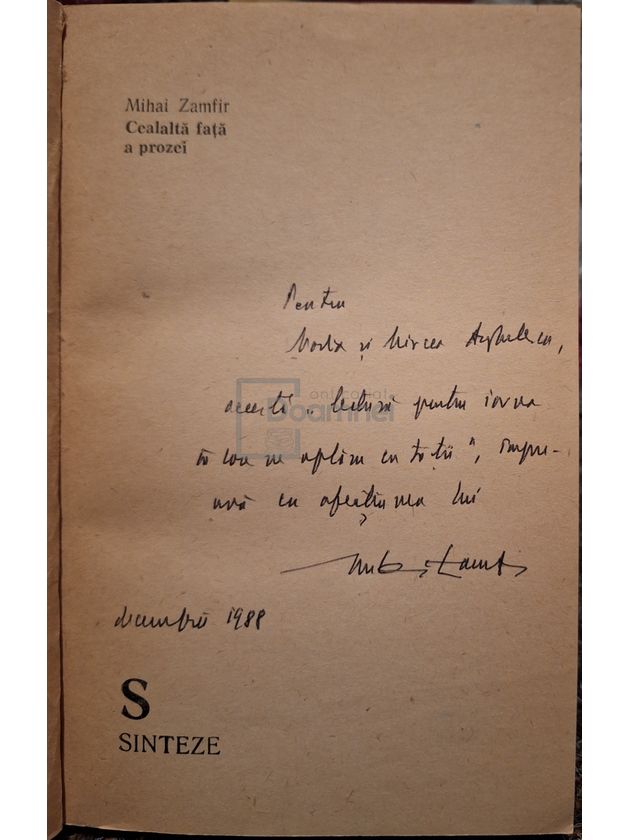 Mihai Zamfir
Cealaltă față
a prozei
Pentru
și Mircea Anghelescu,
această „lectură pentru iarna
în care ne aflăm cu toții", împre-
ună cu afecțiunea lui
Mihai Zamfir
decembrie 1988
S
SINTEZE
anticariat
Doamnei